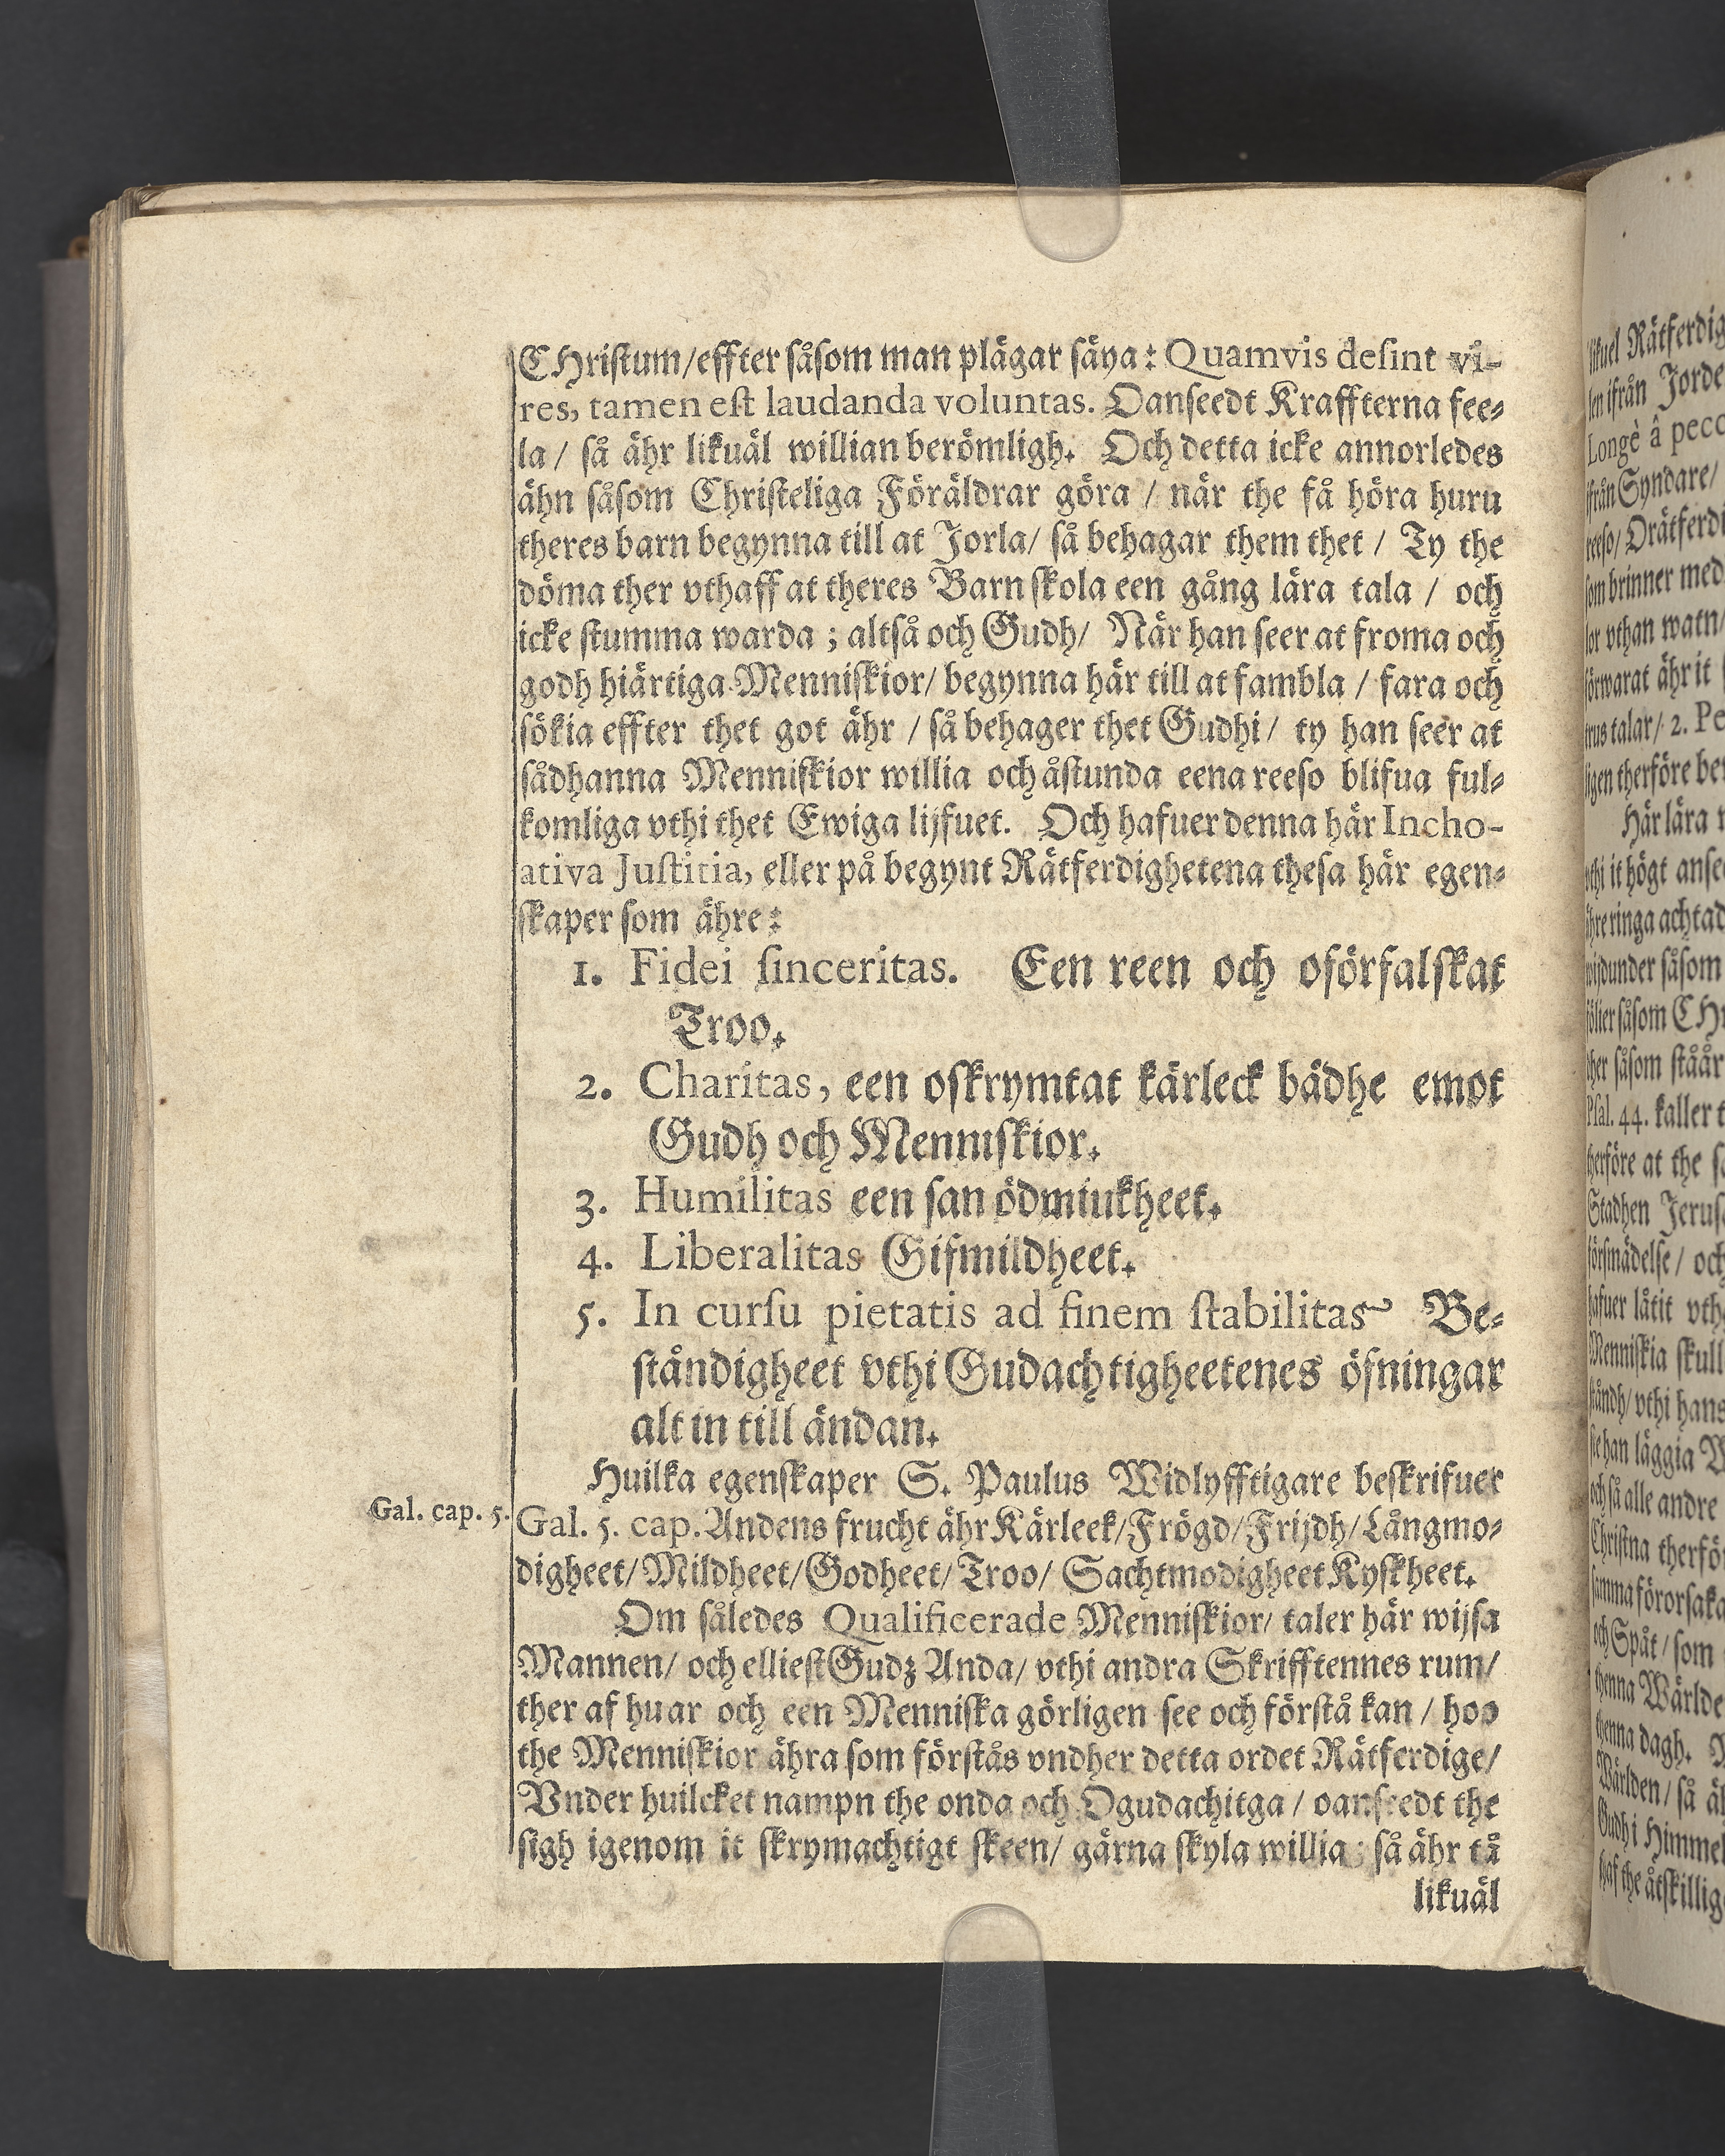 CHriſtum/effter såſom man plägar säya: Quamvis deſint vi-
res, tamen eſt laudanda voluntas. Oanſeedt Kraffterna fee-
la / så ähr likuäl willian berömligh. Och detta icke annorledes
ähn såſom Chriſteliga Föräldrar göra / när the få höra huru
theres barn begynna till at Jorla/ så behagar them thet / Ty the
döma ther vthaff at theres Barn ſkola een gång lära tala / och
icke ſtumma warda ; altså och Gudh/ När han ſeer at froma och
godh hiärtiga Menniſkior/ begynna här till at fambla / fara och
sökia effter thet got ähr / så behager thet Gudhi/ ty han ſeer at
sådhanna Menniſkior willia och åſtunda eena reeſo blifua ful-
komliga vthi thet Ewiga lijfuet. Och hafuer denna här Incho-
ativa Juſtitia, eller på begynt Rätferdighetena theſa här egen-
ſkaper ſom ähre:
1. Fidei ſinceritas. Een reen och oförfalſkat
Troo.
2. Charitas, een oſkrymtat kärleck bådhe emot
Gudh och Menniſkior.
3. Humilitas een ſan ödmiukheet.
4. Liberalitas Gifmildheet.
5. In curſu pietatis ad finem ſtabilitas Be-
ſtåndigheet vthi Gudachtigheetenes öfningar
alt in till ändan.
Huilka egenſkaper S. Paulus Widlyfftigare beſkrifuer
Gal. cap. 5.
Gal. 5. cap. Andens frucht ähr Kärleek/Frögd/Frijdh/Långmo-
digheet/Mildheet/Godheet/Troo/ Sachtmodigheet Kyſkheet.
Om således Qualificerade Menniſkior/ taler här wijſa
Mannen/ och ellieſt Gudz Anda/ vthi andra Skrifftennes rum/
ther af huar och een Menniſka görligen ſee och förſtå kan / hoo
the Menniſkior ähra ſom förſtås vndher detta ordet Rätferdige/
Vnder huilcket nampn the onda och Ogudachitga / oanſeedt the
sigh igenom it ſkrymachtigt ſkeen/ gärna ſkyla willia så ähr tå
likuäl